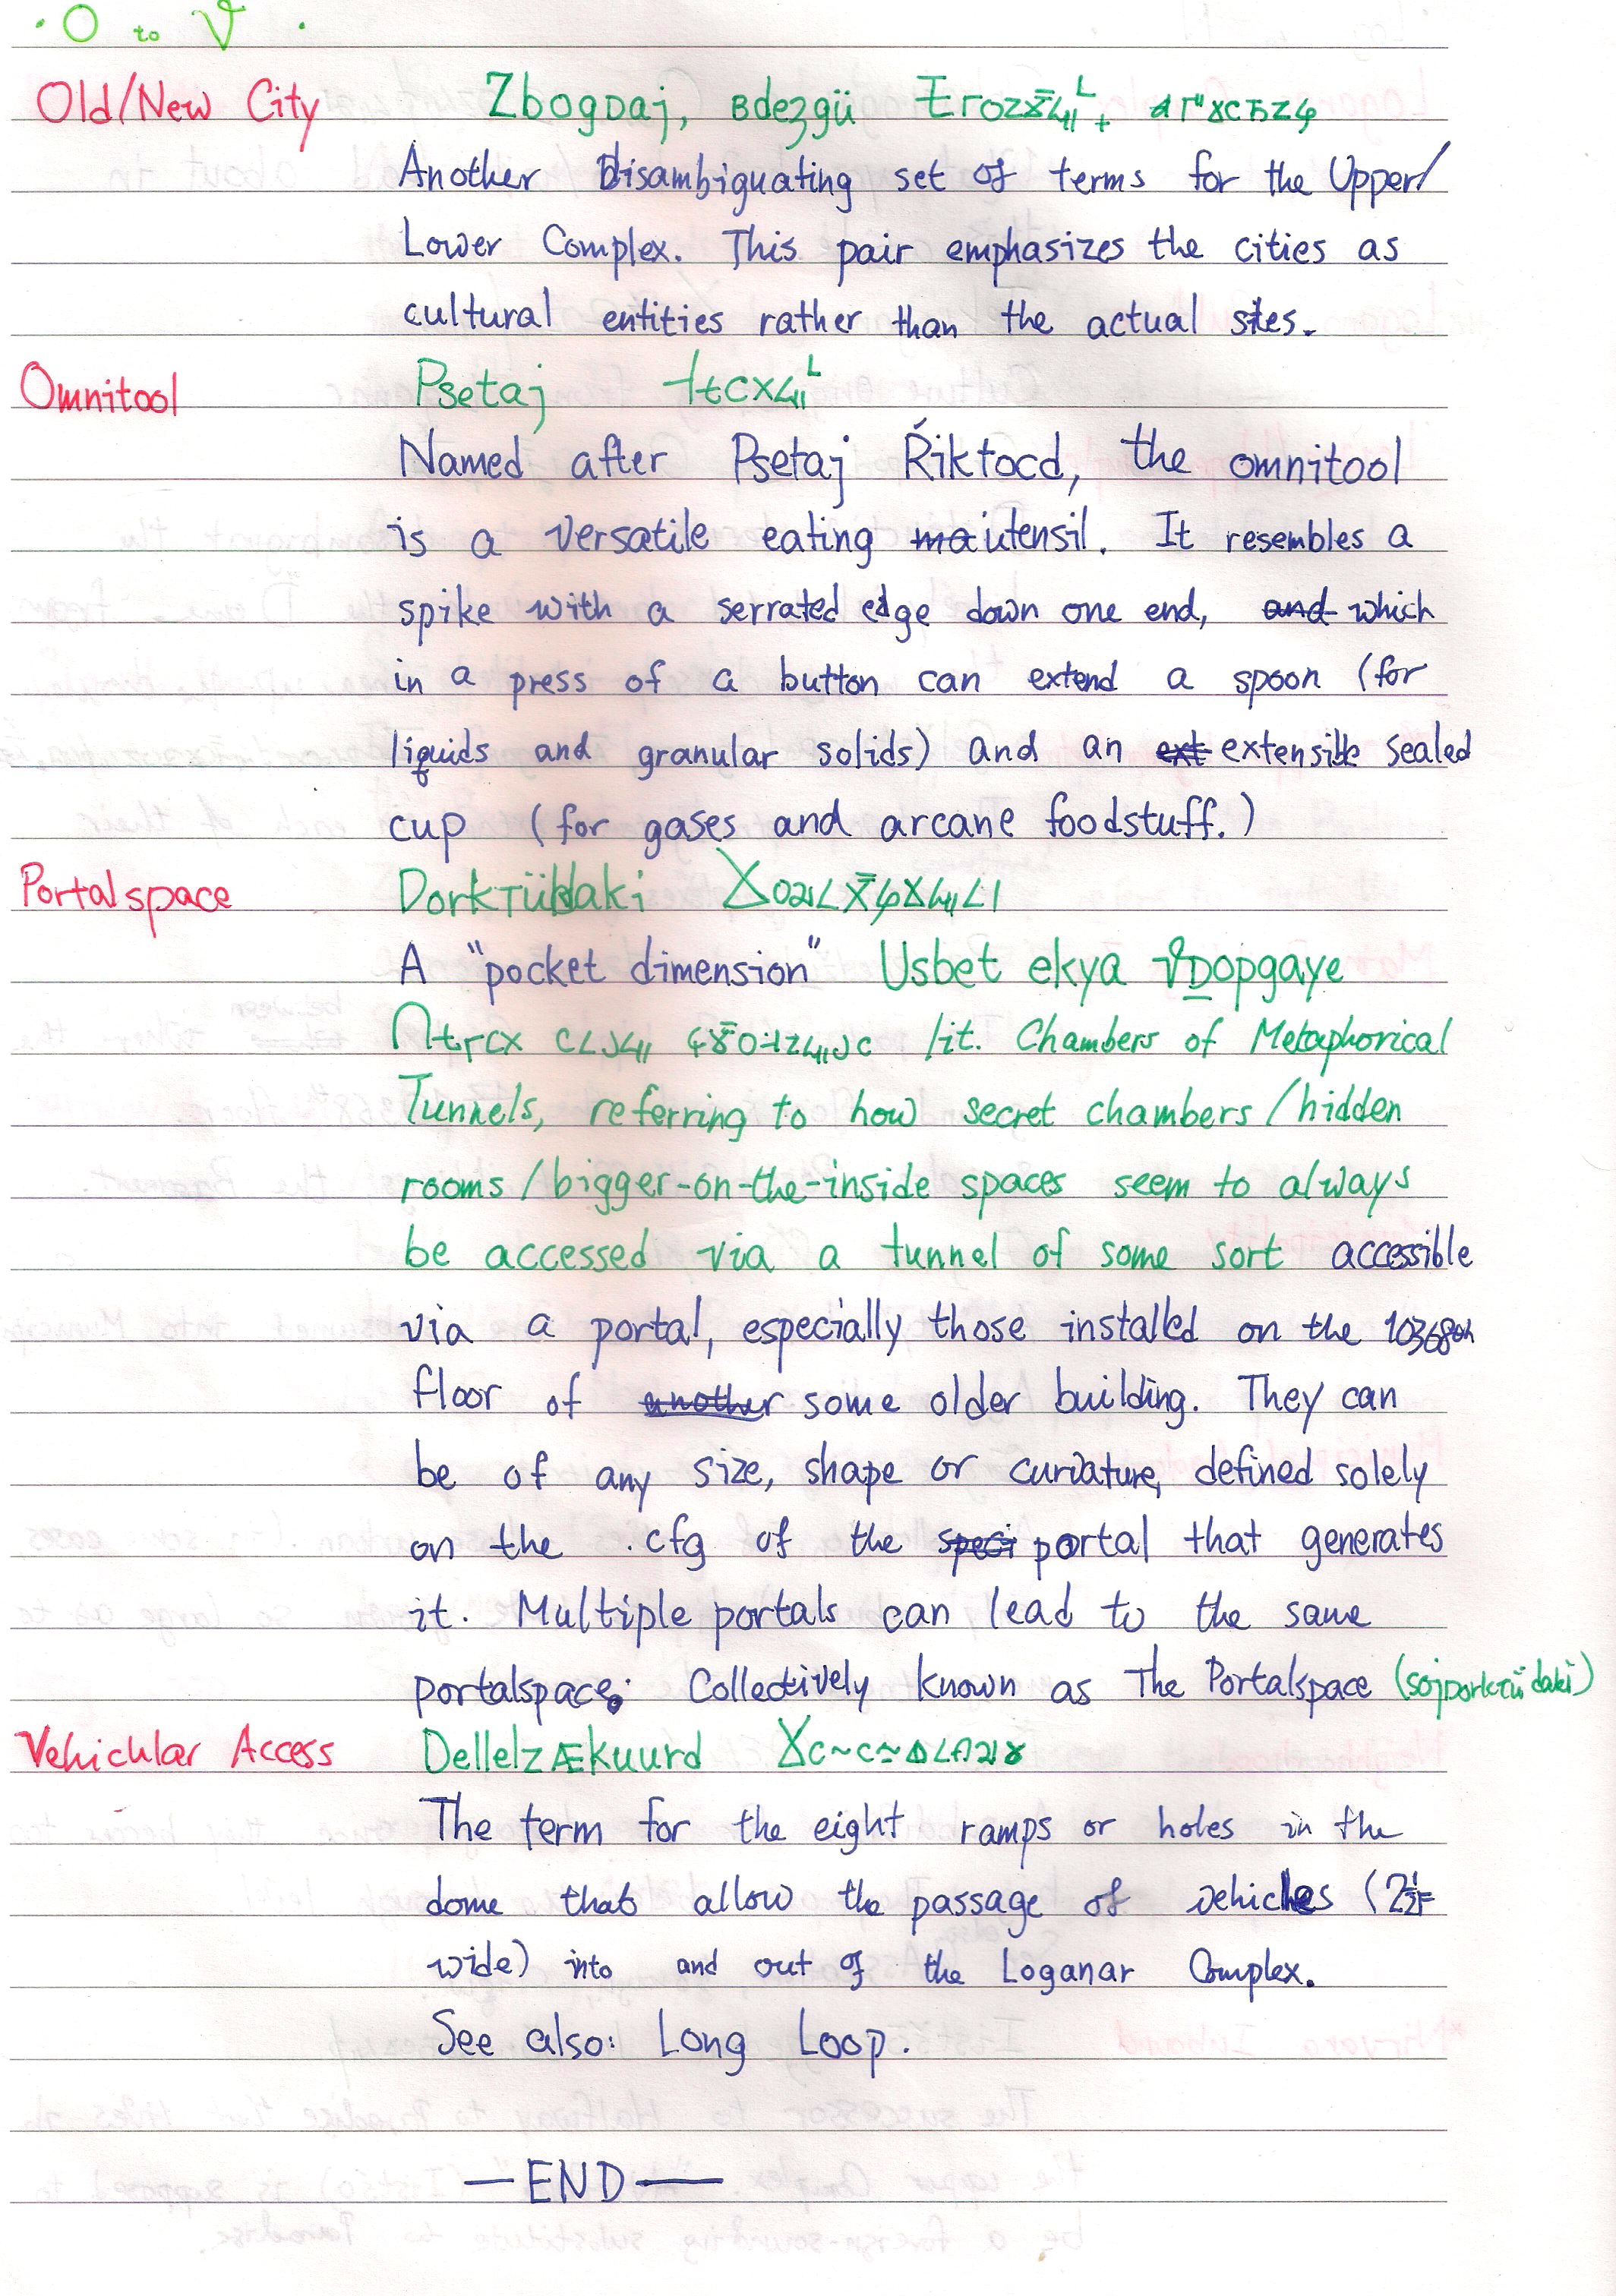 · O to V ·
Old/New City Zbogᴅaj, вdeʒgü
Another Disambiguating set of terms for the Upper/
Lower Complex. This pair emphasizes the cities as
cultural entities rather than the actual sites.
Omnitool Psetaj
Named after Psetaj Řiktocd, the omnitool
is a versatile eating ~~ma~~ utensil. It resembles a
spike with a serrated edge down one end, ~~and~~ which
in a press of a button can extend a spoon (for
liquids and granular solids) and an ~~ext~~ extensible sealed
cup (for gases and arcane foodstuff.)
Portalspace
A "pocket dimension" Usbet ekya
lit. Chambers of Metaphorical
Tunnels, referring to how secret chambers/hidden
rooms/bigger-on-the-inside spaces seem to always
be accessed via a tunnel of some sort accessible
via a portal, especially those installed on the 10368th
floor of ~~another~~ some older building. They can
be of any size, shape or curvature, defined solely
on the .cfg of the ~~speci~~ portal that generates
it. Multiple portals can lead to the same
portalspace. Collectively known as The Portalspace
Vehicular Access DellelzÆkuurd
The term for the eight ramps or holes in the
dome that allow the passage of vehicles
wide) into and out of the Loganar Complex.
See also: Long Loop.
—END—